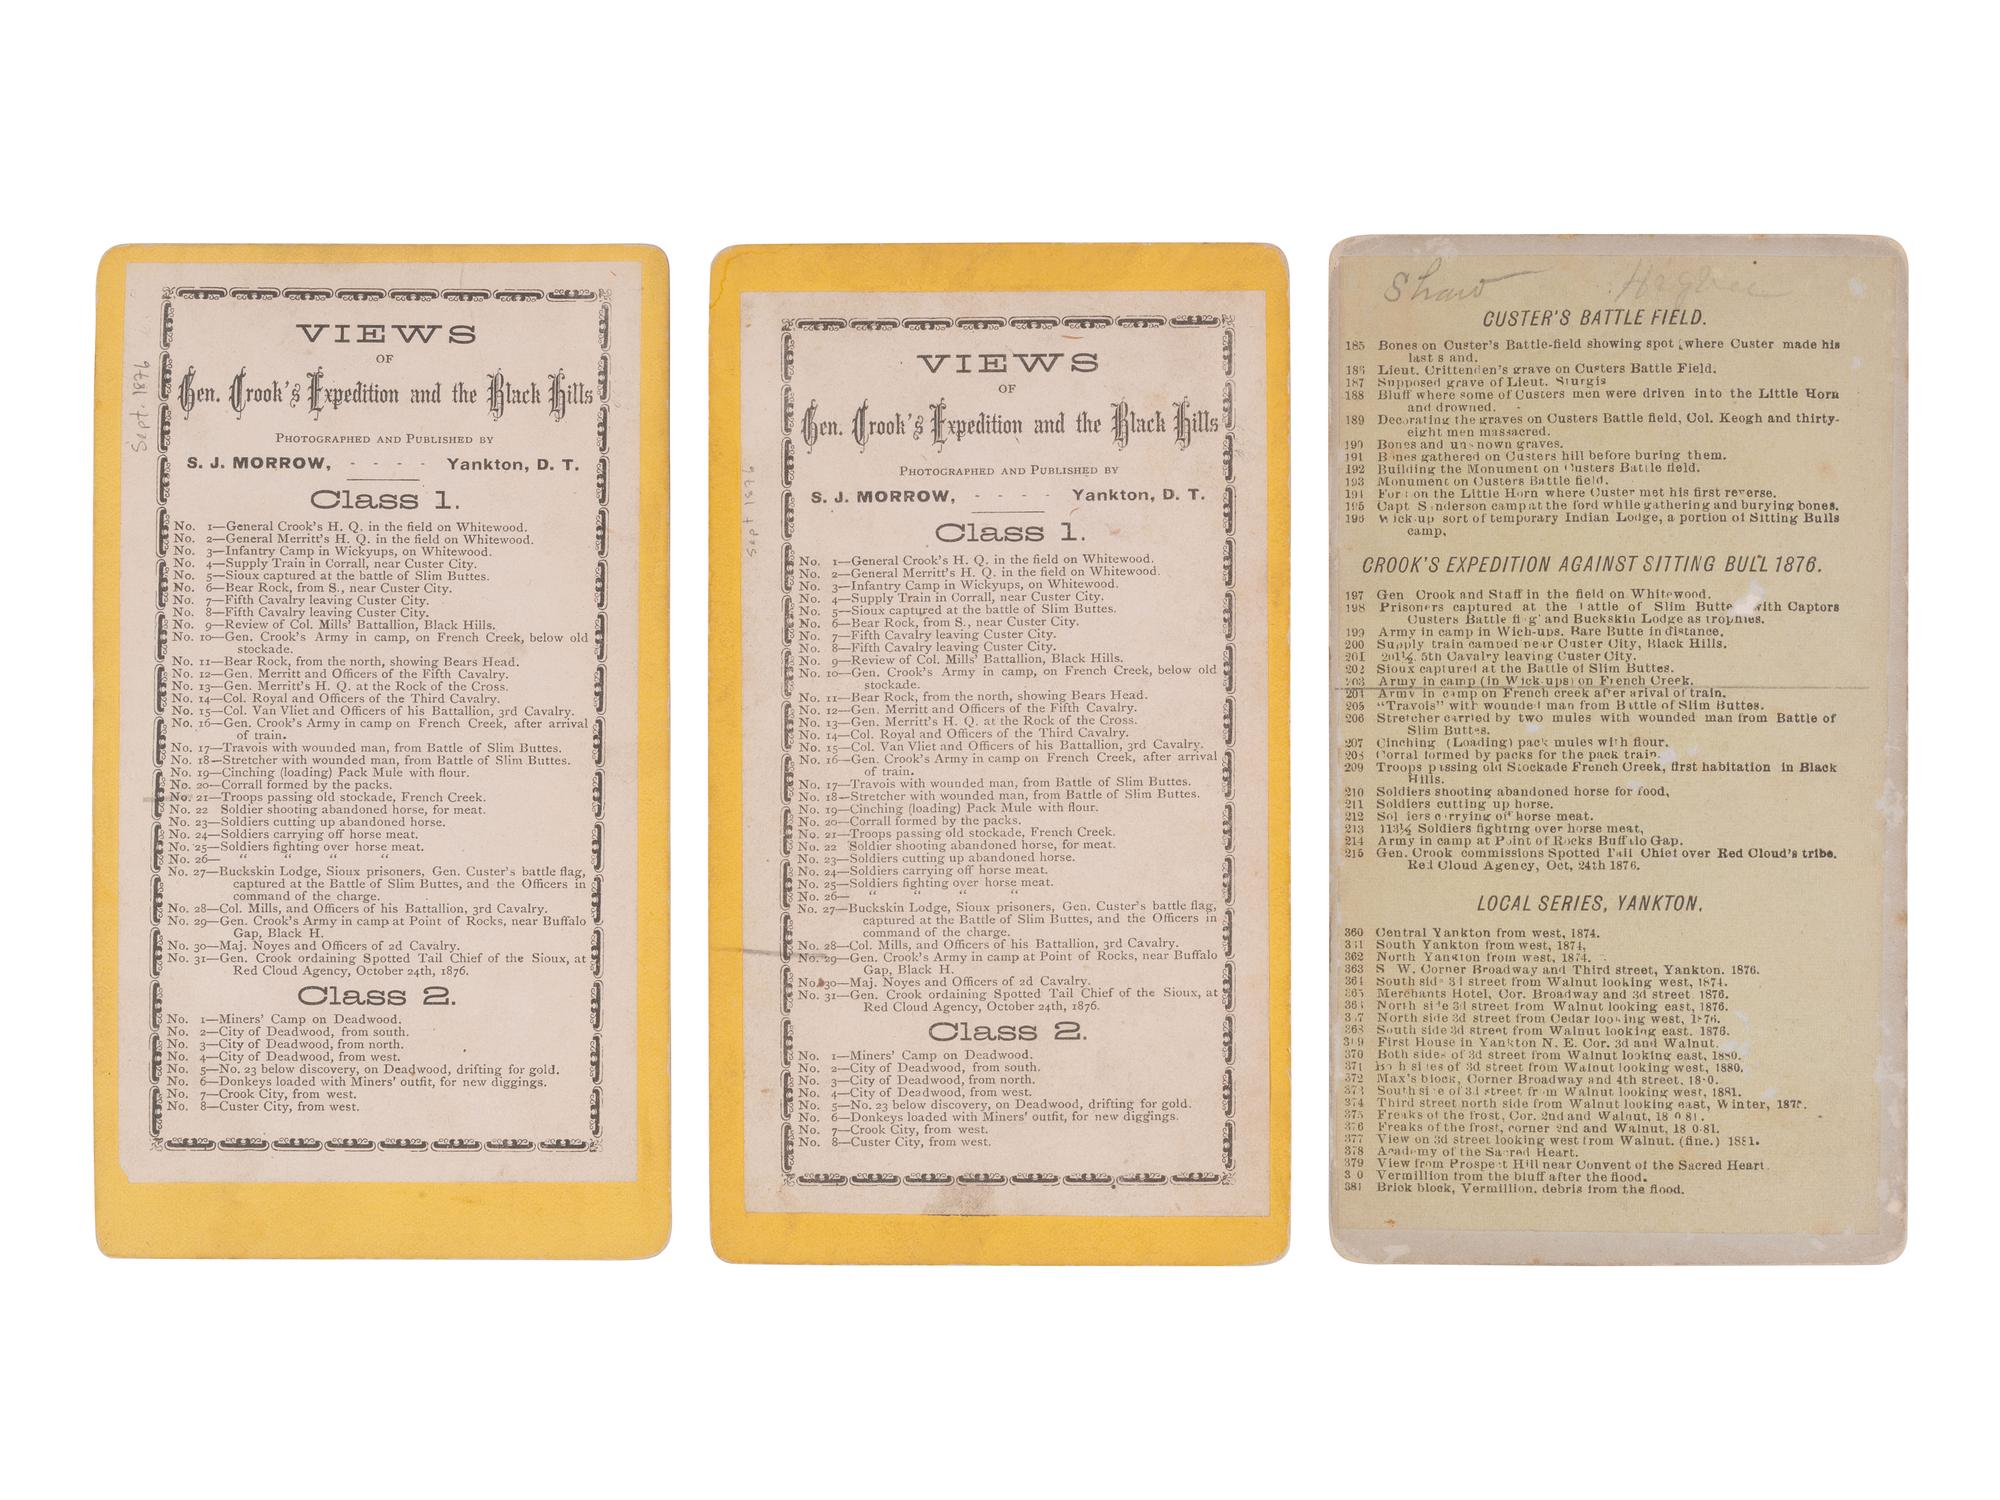 Sept. 1876
VIEWS
OF
Gen. Crook's Expedition and the Black Hills
PHOTOGRAPHED AND PUBLISHED BY
S. J. MORROW, - - - - Yankton, D. T.
Class 1.
No. 1—General Crook's H. Q. in the field on Whitewood.
No. 2—General Merritt's H. Q. in the field on Whitewood.
No. 3—Infantry Camp in Wickyups, on Whitewood.
No. 4—Supply Train in Corrall, near Custer City.
No. 5—Sioux captured at the battle of Slim Buttes.
No. 6—Bear Rock, from S., near Custer City.
No. 7—Fifth Cavalry leaving Custer City.
No. 8—Fifth Cavalry leaving Custer City.
No. 9—Review of Col. Mills' Battallion, Black Hills.
No. 10—Gen. Crook's Army in camp, on French Creek, below old
stockade.
No. 11—Bear Rock, from the north, showing Bears Head.
No. 12—Gen. Merritt and Officers of the Fifth Cavalry.
No. 13—Gen. Merritt's H. Q. at the Rock of the Cross.
No. 14—Col. Royal and Officers of the Third Cavalry.
No. 15—Col. Van Vliet and Officers of his Battallion, 3rd Cavalry.
No. 16—Gen. Crook's Army in camp on French Creek, after arrival
of train.
No. 17—Travois with wounded man, from Battle of Slim Buttes.
No. 18—Stretcher with wounded man, from Battle of Slim Buttes.
No. 19—Cinching (loading) Pack Mule with flour.
No. 20—Corrall formed by the packs.
No. 21—Troops passing old stockade, French Creek.
No. 22 Soldier shooting abandoned horse, for meat.
No. 23—Soldiers cutting up abandoned horse.
No. 24—Soldiers carrying off horse meat.
No. 25—Soldiers fighting over horse meat.
No. 26— “ “ “ “
No. 27—Buckskin Lodge, Sioux prisoners, Gen. Custer's battle flag,
captured at the Battle of Slim Buttes, and the Officers in
command of the charge.
No. 28—Col. Mills, and Officers of his Battallion, 3rd Cavalry.
No. 29—Gen. Crook's Army in camp at Point of Rocks, near Buffalo
Gap, Black H.
No. 30—Maj. Noyes and Officers of 2d Cavalry.
No. 31—Gen. Crook ordaining Spotted Tail Chief of the Sioux, at
Red Cloud Agency, October 24th, 1876.
Class 2.
No. 1—Miners' Camp on Deadwood.
No. 2—City of Deadwood, from south.
No. 3—City of Deadwood, from north.
No. 4—City of Deadwood, from west.
No. 5—No. 23 below discovery, on Deadwood, drifting for gold.
No. 6—Donkeys loaded with Miners' outfit, for new diggings.
No. 7—Crook City, from west.
No. 8—Custer City, from west.
Sept 1876
VIEWS
OF
Gen. Crook's Expedition and the Black Hills
PHOTOGRAPHED AND PUBLISHED BY
S. J. MORROW, - - - - Yankton, D. T.
Class 1.
No. 1—General Crook's H. Q. in the field on Whitewood.
No. 2—General Merritt's H. Q. in the field on Whitewood.
No. 3—Infantry Camp in Wickyups, on Whitewood.
No. 4—Supply Train in Corrall, near Custer City.
No. 5—Sioux captured at the battle of Slim Buttes.
No. 6—Bear Rock, from S., near Custer City.
No. 7—Fifth Cavalry leaving Custer City.
No. 8—Fifth Cavalry leaving Custer City.
No. 9—Review of Col. Mills' Battallion, Black Hills.
No. 10—Gen. Crook's Army in camp, on French Creek, below old
stockade.
No. 11—Bear Rock, from the north, showing Bears Head.
No. 12—Gen. Merritt and Officers of the Fifth Cavalry.
No. 13—Gen. Merritt's H. Q. at the Rock of the Cross.
No. 14—Col. Royal and Officers of the Third Cavalry.
No. 15—Col. Van Vliet and Officers of his Battallion, 3rd Cavalry.
No. 16—Gen. Crook's Army in camp on French Creek, after arrival
of train.
No. 17—Travois with wounded man, from Battle of Slim Buttes.
No. 18—Stretcher with wounded man, from Battle of Slim Buttes.
No. 19—Cinching (loading) Pack Mule with flour.
No. 20—Corrall formed by the packs.
No. 21—Troops passing old stockade, French Creek.
No. 22 Soldier shooting abandoned horse, for meat.
No. 23—Soldiers cutting up abandoned horse.
No. 24—Soldiers carrying off horse meat.
No. 25—Soldiers fighting over horse meat.
No. 26— “ “ “ “
No. 27—Buckskin Lodge, Sioux prisoners, Gen. Custer's battle flag,
captured at the Battle of Slim Buttes, and the Officers in
command of the charge.
No. 28—Col. Mills, and Officers of his Battallion, 3rd Cavalry.
No. 29—Gen. Crook's Army in camp at Point of Rocks, near Buffalo
Gap, Black H.
No. 30—Maj. Noyes and Officers of 2d Cavalry.
No. 31—Gen. Crook ordaining Spotted Tail Chief of the Sioux, at
Red Cloud Agency, October 24th, 1876.
Class 2.
No. 1—Miners' Camp on Deadwood.
No. 2—City of Deadwood, from south.
No. 3—City of Deadwood, from north.
No. 4—City of Deadwood, from west.
No. 5—No. 23 below discovery, on Deadwood, drifting for gold.
No. 6—Donkeys loaded with Miners' outfit, for new diggings.
No. 7—Crook City, from west.
No. 8—Custer City, from west.
Shaw
CUSTER'S BATTLE FIELD.
185 Bones on Custer's Battle-field showing spot where Custer made his
last s and.
186 Lieut. Crittenden's grave on Custers Battle Field.
187 Supposed grave of Lieut. Sturgis
188 Bluff where some of Custers men were driven into the Little Horn
and drowned.
189 Decorating the graves on Custers Battle field, Col. Keogh and thirty-
eight men massacred.
190 Bones and unknown graves.
191 Bones gathered on Custers hill before buring them.
192 Building the Monument on Custers Battle field.
193 Monument on Custers Battle field.
194 Ford on the Little Horn where Custer met his first reverse.
195 Capt Sanderson camp at the ford while gathering and burying bones.
196 Wick-up sort of temporary Indian Lodge, a portion of Sitting Bulls
camp,
CROOK'S EXPEDITION AGAINST SITTING BULL 1876.
197 Gen Crook and Staff in the field on Whitewood.
198 Prisoners captured at the battle of Slim Butte with Captors
Custers Battle flag and Buckskin Lodge as trophies.
199 Army in camp in Wich-ups. Bare Butte in distance.
200 Supply train camped near Custer City, Black Hills.
201 201½ 5th Cavalry leaving Custer City.
202 Sioux captured at the Battle of Slim Buttes.
203 Army in camp (in Wick-ups) on French Creek.
204 Army in camp on French creek after arival of train.
205 “Travois” with wounded man from Battle of Slim Buttes.
206 Stretcher carried by two mules with wounded man from Battle of
Slim Buttes.
207 Cinching (Loading) pack mules with flour.
208 Corral formed by packs for the pack train.
209 Troops passing old Stockade French Creek, first habitation in Black
Hills.
210 Soldiers shooting abandoned horse for food,
211 Soldiers cutting up horse.
212 Soldiers carrying off horse meat.
213 113½ Soldiers fighting over horse meat,
214 Army in camp at Point of Rocks Buffalo Gap.
215 Gen. Crook commissions Spotted Tail Chief over Red Cloud's tribe.
Red Cloud Agency, Oct, 24th 1876.
LOCAL SERIES, YANKTON,
360 Central Yankton from west, 1874.
361 South Yankton from west, 1874,
362 North Yankton from west, 1874.
363 S W. Corner Broadway and Third street, Yankton. 1876.
364 South side 3d street from Walnut looking west, 1874.
365 Merchants Hotel, Cor. Broadway and 3d street 1876.
366 North side 3d street from Walnut looking east, 1876.
367 North side 3d street from Cedar looking west, 1876.
368 South side 3d street from Walnut looking east, 1876.
369 First House in Yankton N. E. Cor. 3d and Walnut.
370 Both sides of 3d street from Walnut looking east, 1880.
371 Both sides of 3d street from Walnut looking west, 1880.
372 Max's block, Corner Broadway and 4th street. 18 0.
373 South side of 3d street from Walnut looking west, 1881.
374 Third street north side from Walnut looking east, Winter,
375 Freaks of the frost, Cor. 2nd and Walnut, 18 0 81.
376 Freaks of the frost, corner 2nd and Walnut, 18 0-81.
377 View on 3d street looking west from Walnut. (fine.) 1881.
378 Academy of the Sacred Heart.
379 View from Prospect Hill near Convent of the Sacred Heart.
3 0 Vermillion from the bluff after the flood.
381 Brick block, Vermillion, debris from the flood.